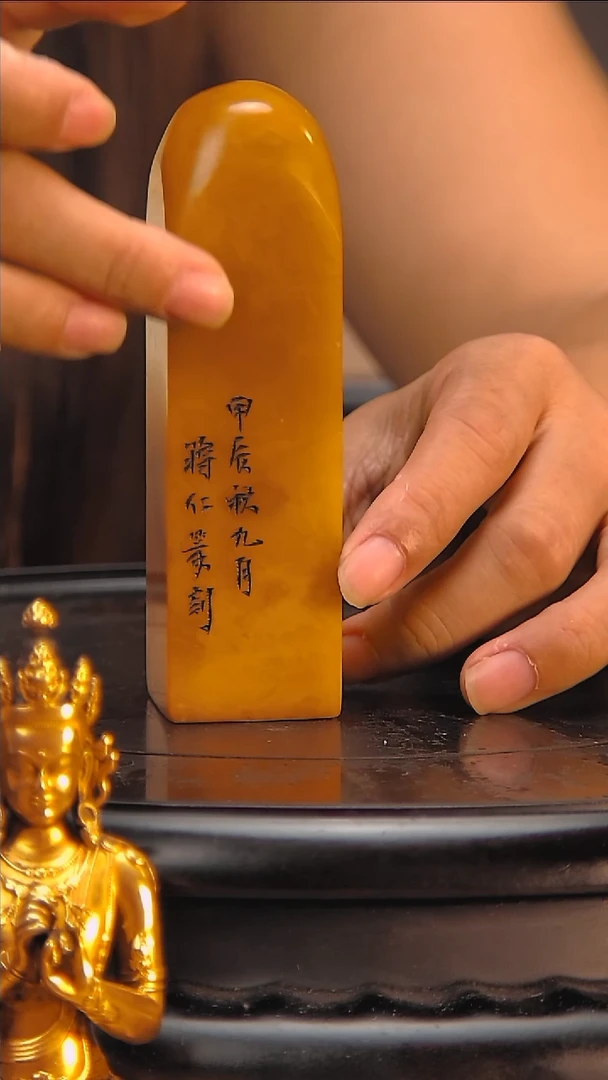 甲辰秋九月
蒋仁篆刻